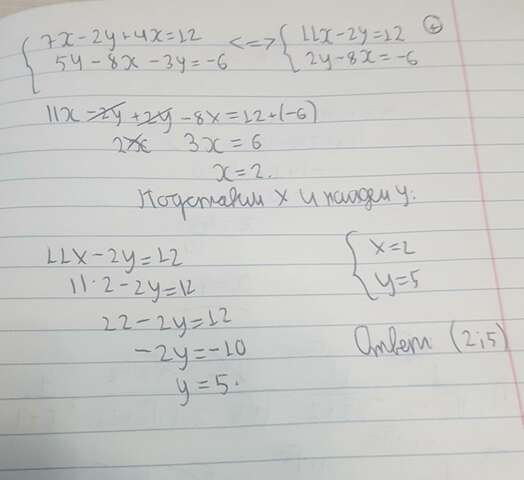 { 7x-2y+4x=12 <=> { 11x-2y=12 +
5y-8x-3y=-6 2y-8x=-6
11x-2y+2y-8x=12+(-6)
3x=6
x=2.
Подставим x и найдем y.
11x-2y=12
11·2-2y=12
22-2y=12
-2y=-10
y=5.
{ x=2
y=5
Ответ (2;5)